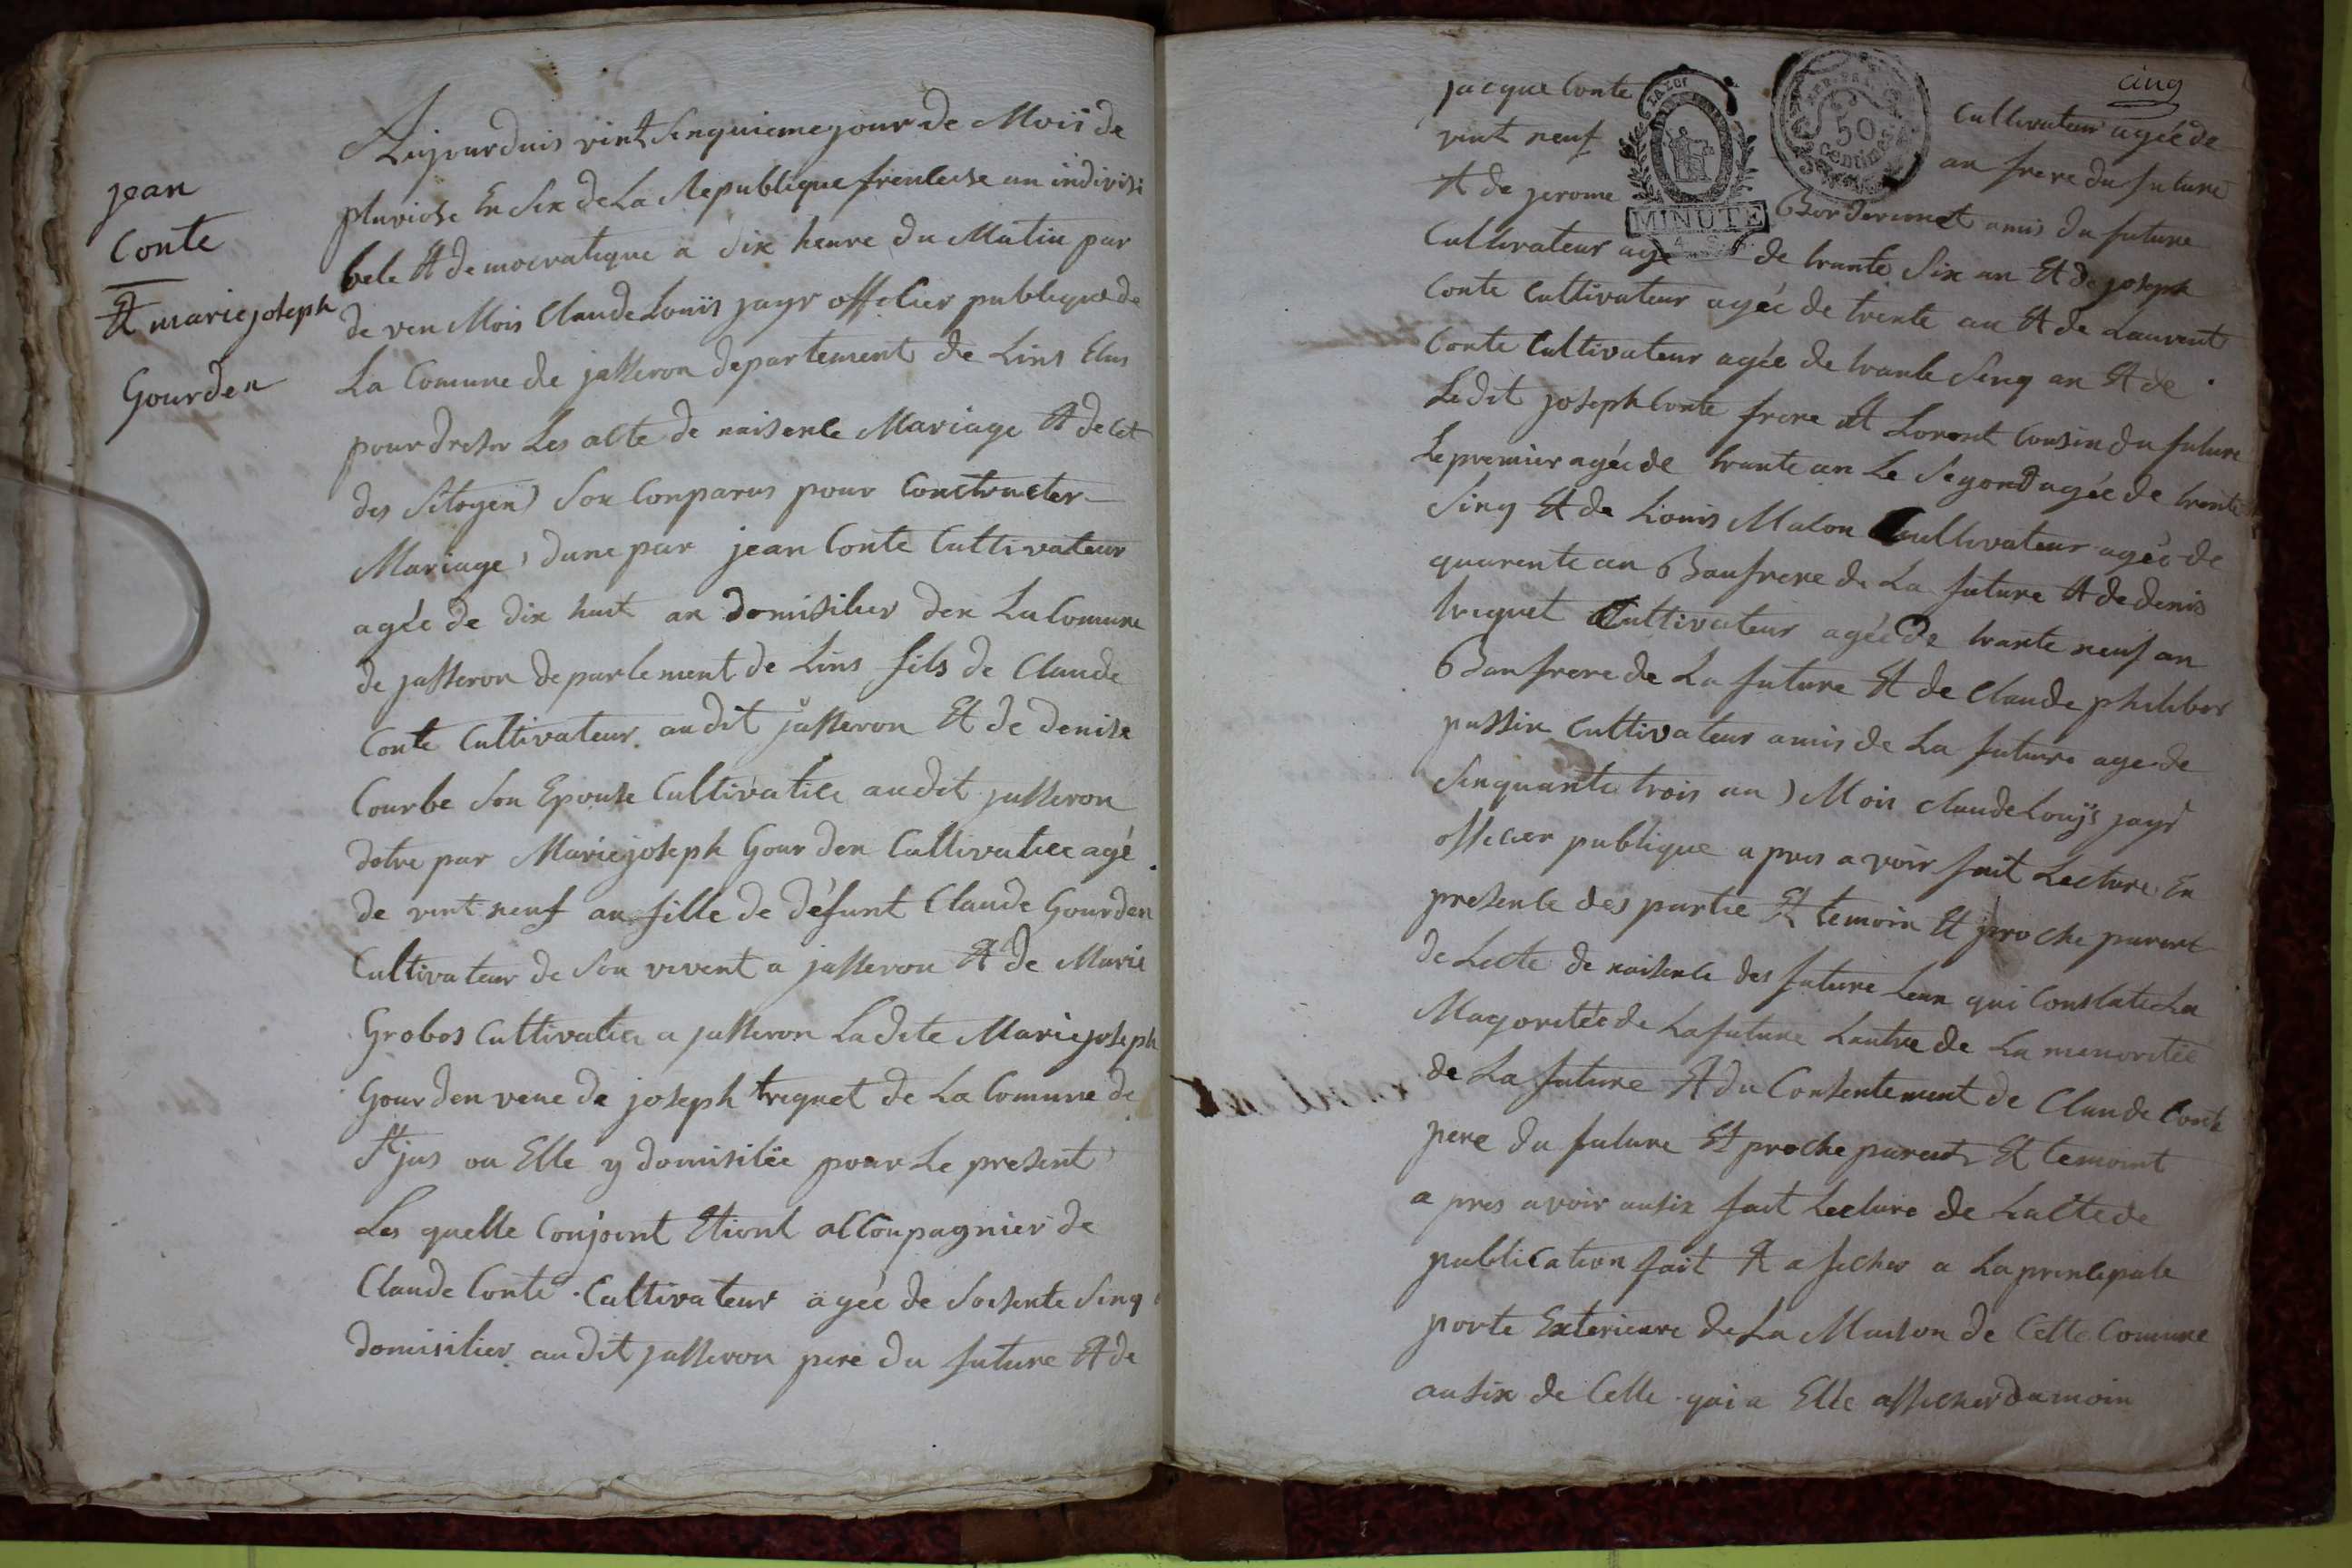 jean
Conte
Et marie joseph
Gourden
Aujourduis vint sinquieme jour de Mois de
pluviose En Six de La Republique frencaise un indivisi
bele Et democratique a dix heure du Matin par
de ven Mois Claude Louis jayr officier publique de
La Comune de jasseron departement de Lins Elus
pour dreser Les acte de naisence Mariage Et decet
des Sitoyen) Son Conparus pour Constructer
Mariage, dune par jean Conte Cultivateur
agée de dix huit an domisilier den La Comune
de jasseron departement de Lins fils de Claude
Conte Cultivateur audit jasseron Et de denise
Courbe Son Epouse Cultivatice audit jasseron
dotre par Marie joseph Gourden Cultivatice agé
de vint neuf an fille de défunt Claude Gourden
Cultivateur de Son vivent a jasseron Et de Marie
Grobos Cultivatice a jasseron Ladite Marie joseph
Gourden veue de joseph triquet de La Comune de
St jus ou Elle y domisilée pour Le present
Les quelle Conjoint Etiont accompagnier de
Claude Conte Cultivateur agée de soisente Sinq
domisilier audit jasseron pere du future Et de
cinq
LA LOI
MINUTE
REP. FRA.
50
centimes
jacque Conte Cultivateur agée de
vint neuf an frere du future
Et de jerome Borderionet amis du future
Cultivateur age de trante Six an Et de joseph
Conte Cultivateur agée de trente an Et de Laurent
Conte Cultivateur agée de trante Sinq an Et de
Ledit joseph Conte frere Et Lorent Cousin du future
Le premier agée de trante an Le Segond agée de trente
Sinq Et de Liouis Malon Cultivateur agée de
quarente an Baufrere de La future Et de denis
triquet Cultivateur agée de trante neuf an
Baufrere de La future Et de Claude philiber
passin Cultivateur amis de La future age de
Sinquante trois an) Mois Claude Louis jayr
officier publique a pres avoir fait Lecture En
presence des partie Et temoin Et proche parent
de Lecte de naisence des future Leun qui Constate La
Magoritée de La future Lautre de La menoritée
de La future Et du Consentement de Claude Conte
pere du future Et proche parent Et temoint
a pres avoir ausix fait Lecture de Lacte de
publication fait Et aficher a La principale
porte Exterieure de La Maison de Cette Comune
ausix de Celle qui a Elle afficher du moin